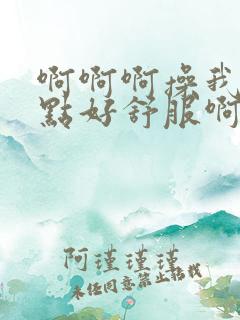 啊啊啊操我
點好舒服啊
阿瑾瑾瑾
未经同意禁止搭我